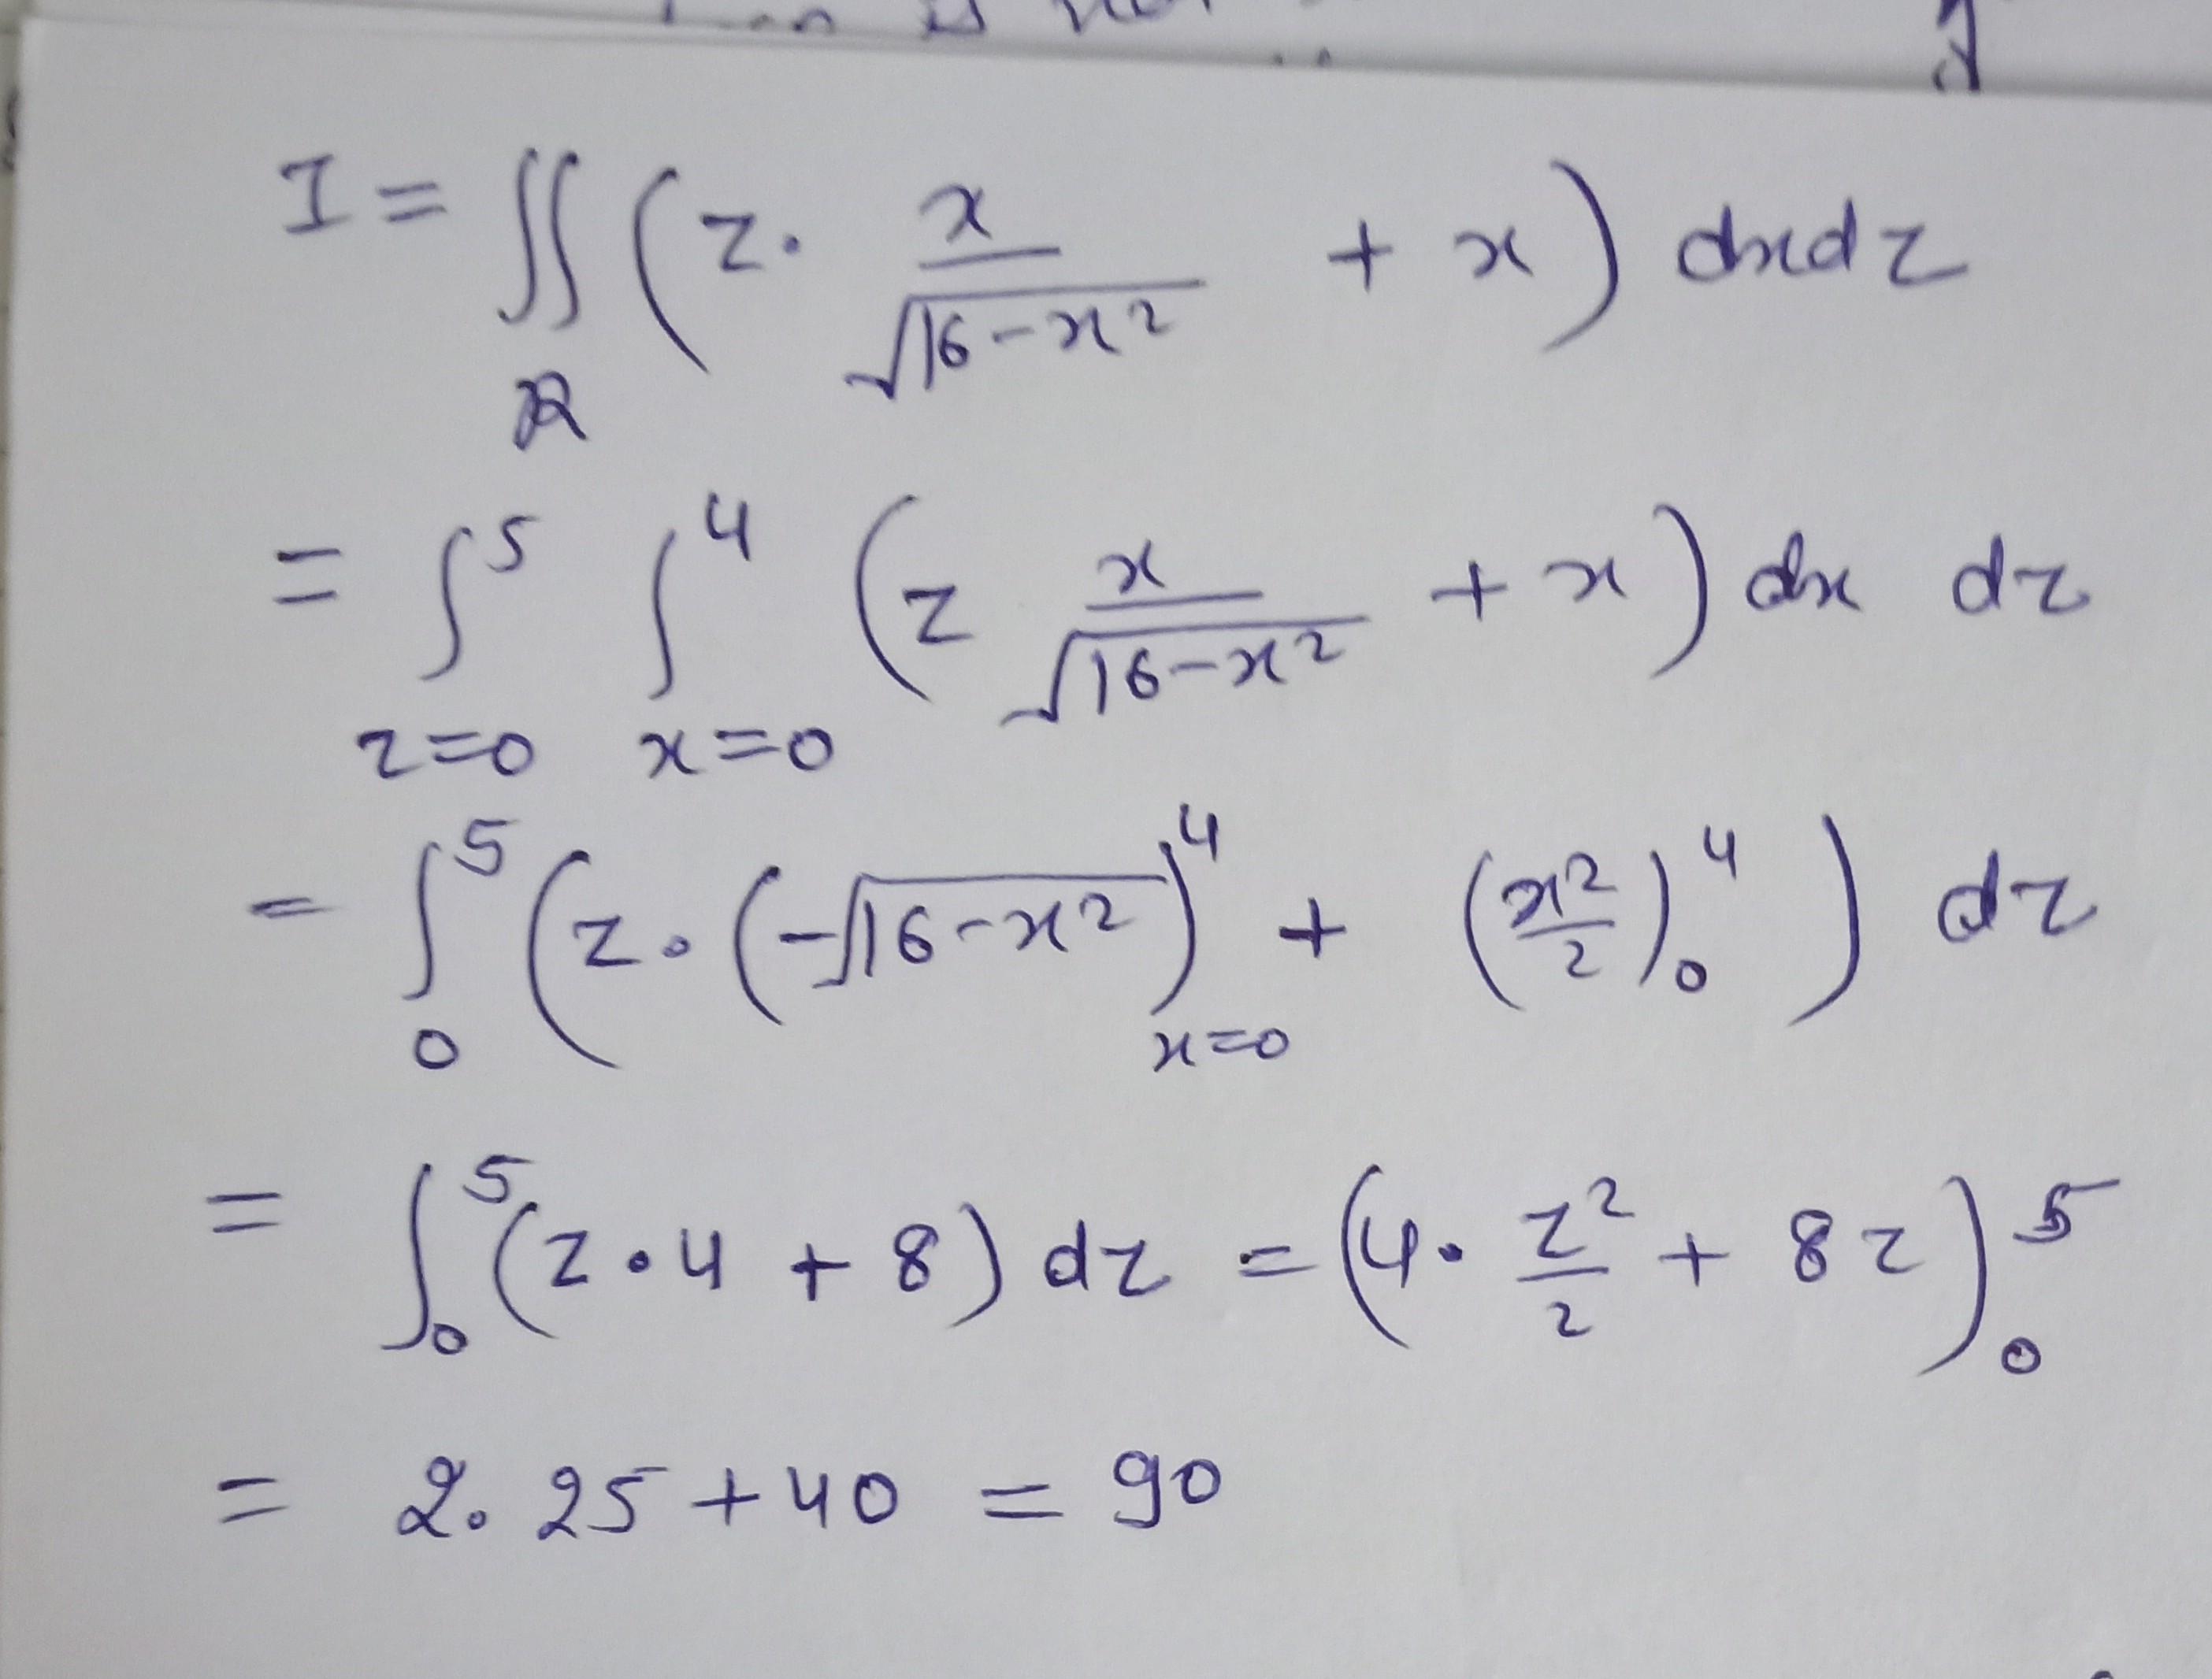 I = ∬_R (z · x/√(16-x²) + x) dxdz
= ∫_{z=0}^{5} ∫_{x=0}^{4} (z x/√(16-x²) + x) dx dz
= ∫_0^5 (z · (-√(16-x²))_{x=0}^{4} + (x²/2)_0^4) dz
= ∫_0^5 (z · 4 + 8) dz = (4 · z²/2 + 8z)_0^5
= 2 · 25 + 40 = 90